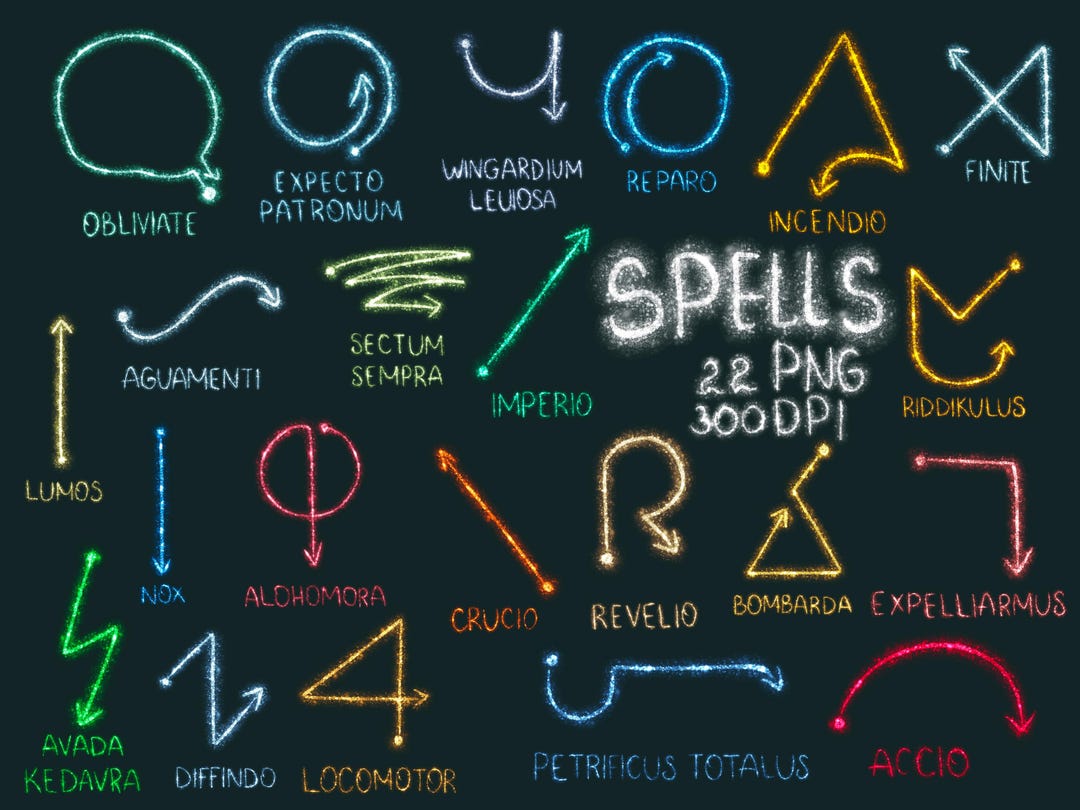 OBLIVIATE
EXPECTO
PATRONUM
WINGARDIUM
LEUIOSA
REPARO
INCENDIO
FINITE
LUMOS
AGUAMENTI
SECTUM
SEMPRA
IMPERIO
SPELLS
22 PNG
300DPI
RIDDIKULUS
NOX
ALOHOMORA
CRUCIO
REVELIO
BOMBARDA
EXPELLIARMUS
AVADA
KEDAVRA
DIFFINDO
LOCOMOTOR
PETRIFICUS TOTALUS
ACCIO